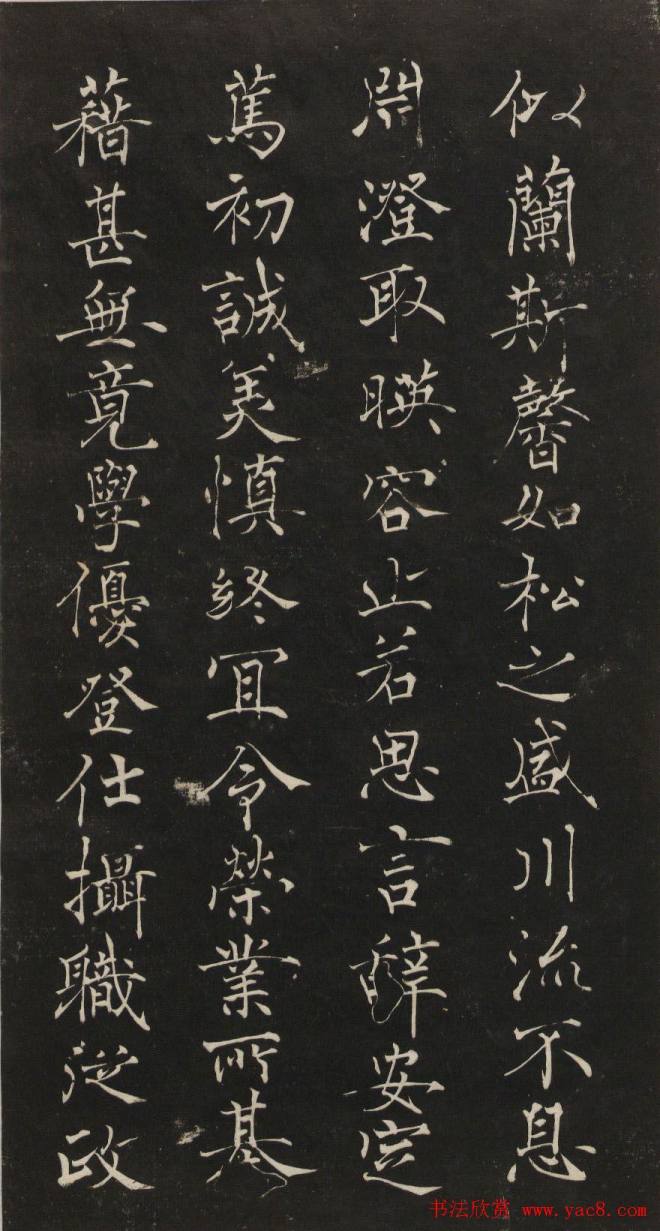 似蘭斯馨如松之盛川流不息
淵澄取暎容止若思言辭安定
篤初誠美慎終冝令榮業所基
藉甚無竟學優登仕攝職從政
书法欣赏 www.yac8.com